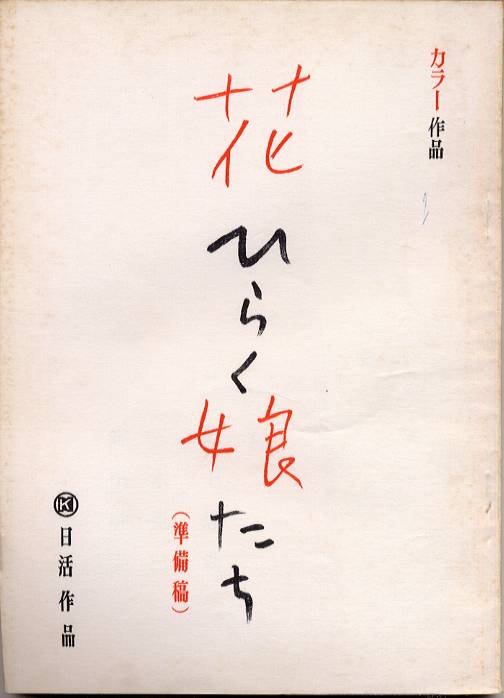 カラー作品
花ひらく娘たち
(準備稿)
K 日活作品